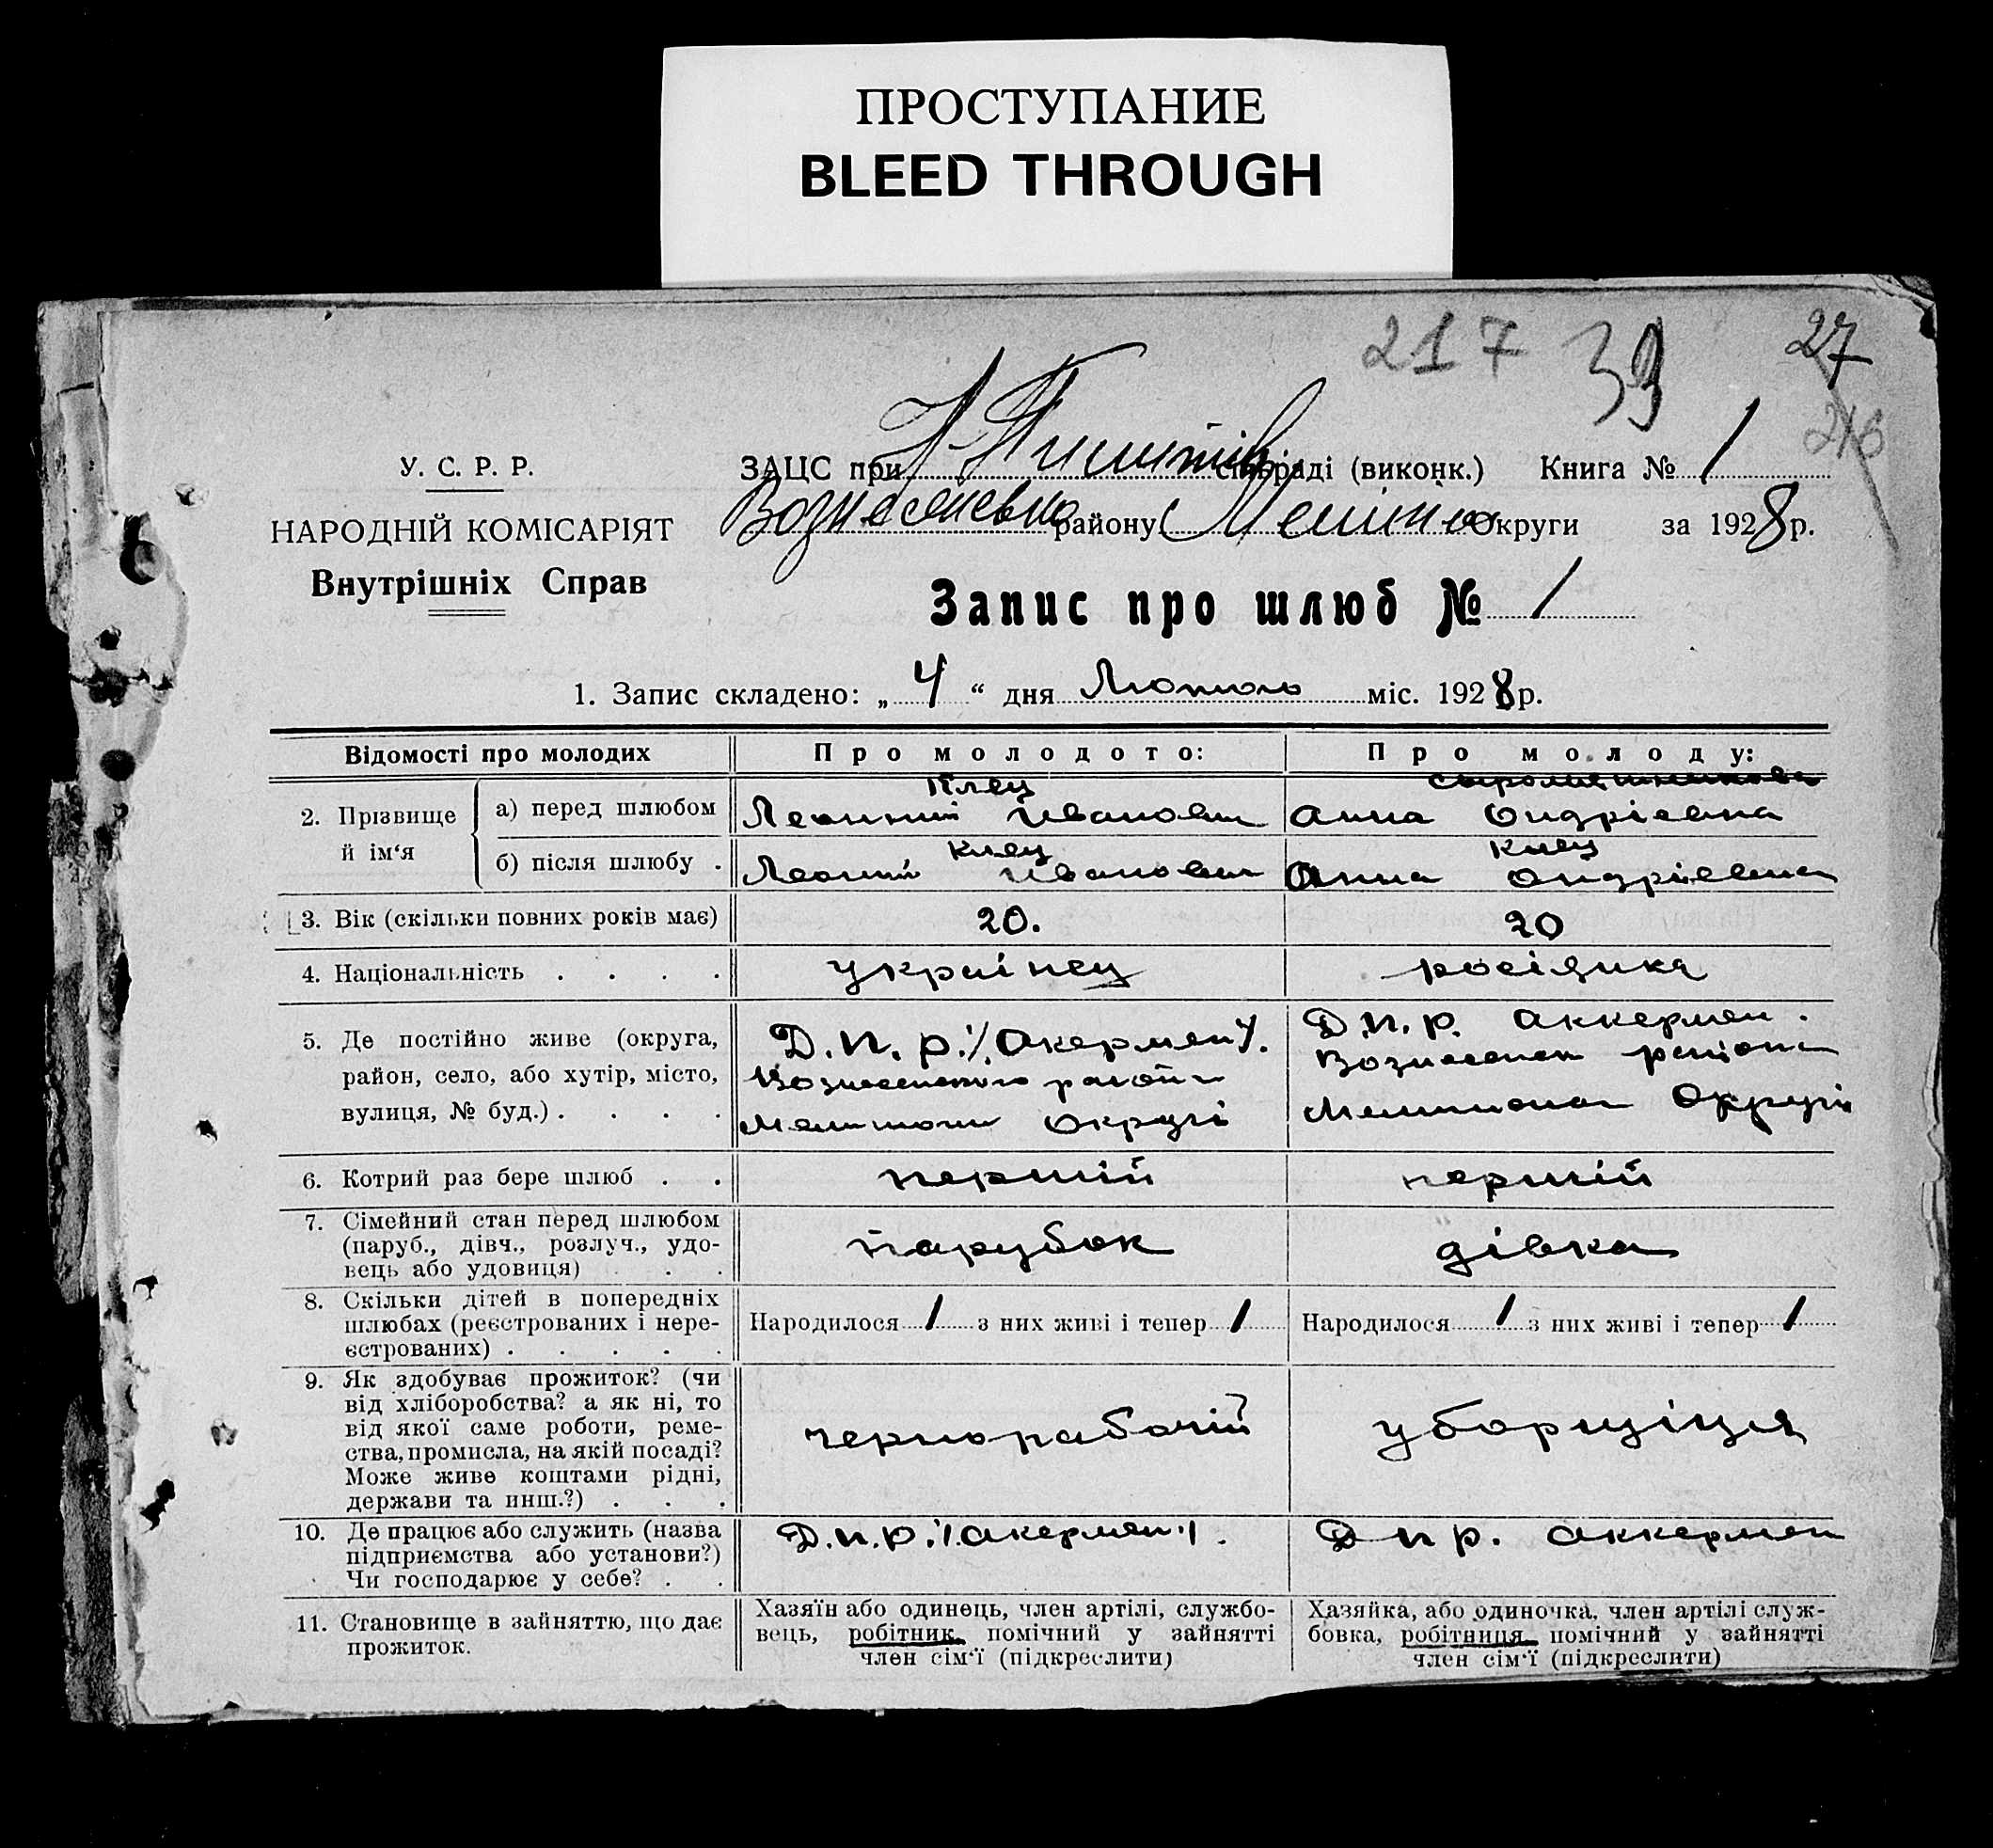 ПРОСТУПАНИЕ
BLEED THROUGH
217 33 27
216
У. С. Р. Р.
НАРОДНІЙ КОМІСАРІЯТ
Внутрішніх Справ
ЗАЦС при сільраді (виконк.) Книга № 1
району Округи за 1928 р.
Запис про шлюб № 1
1. Запис складено: „ 4 “ дня міс. 1928 р.
Відомості про молодих
Про молодого:
Про молоду:
2. Прізвище й ім‘я
а) перед шлюбом
Иванович
Анна Ондріевна
б) після шлюбу .
Клец
Иванович
Клец
Анна Ондріевна
3. Вік (скільки повних років має)
20.
20
4. Національність . . . .
украінец
росіянка
5. Де постійно живе (округа,
район, село, або хутір, місто,
вулиця, № буд.) . . . .
Д.п.р. /Акермен/.
району
Округі
Д.п.р. Аккермен.
району
Округи
6. Котрий раз бере шлюб . .
першій
першій
7. Сімейний стан перед шлюбом
(паруб., дівч., розлуч., удо-
вець або удовиця) . .
парубок
дівка
8. Скільки дітей в попередніх
шлюбах (реєстрованих і нере-
єстрованих) . . . . .
Народилося / з них живі і тепер /
Народилося / з них живі і тепер /
9. Як здобуває прожиток? (чи
від хліборобства? а як ні, то
від якої саме роботи, реме-
ства, промисла, на якій посаді?
Може живе коштами рідні,
держави та инш.?) . . .
чернорабочій
уборщіця
10. Де працює або служить (назва
підприємства або установи?)
Чи господарює у себе? . .
Д.п.р. /Акермен/.
Д п р. Аккермен
11. Становище в зайняттю, що дає
прожиток.
Хазяїн або одинець, член артілі, службо-
вець, робітник, помічний у зайнятті
член сім‘ї (підкреслити)
Хазяйка, або одиночка, член артілі служ-
бовка, робітниця, помічний у зайнятті
член сім‘ї (підкреслити)